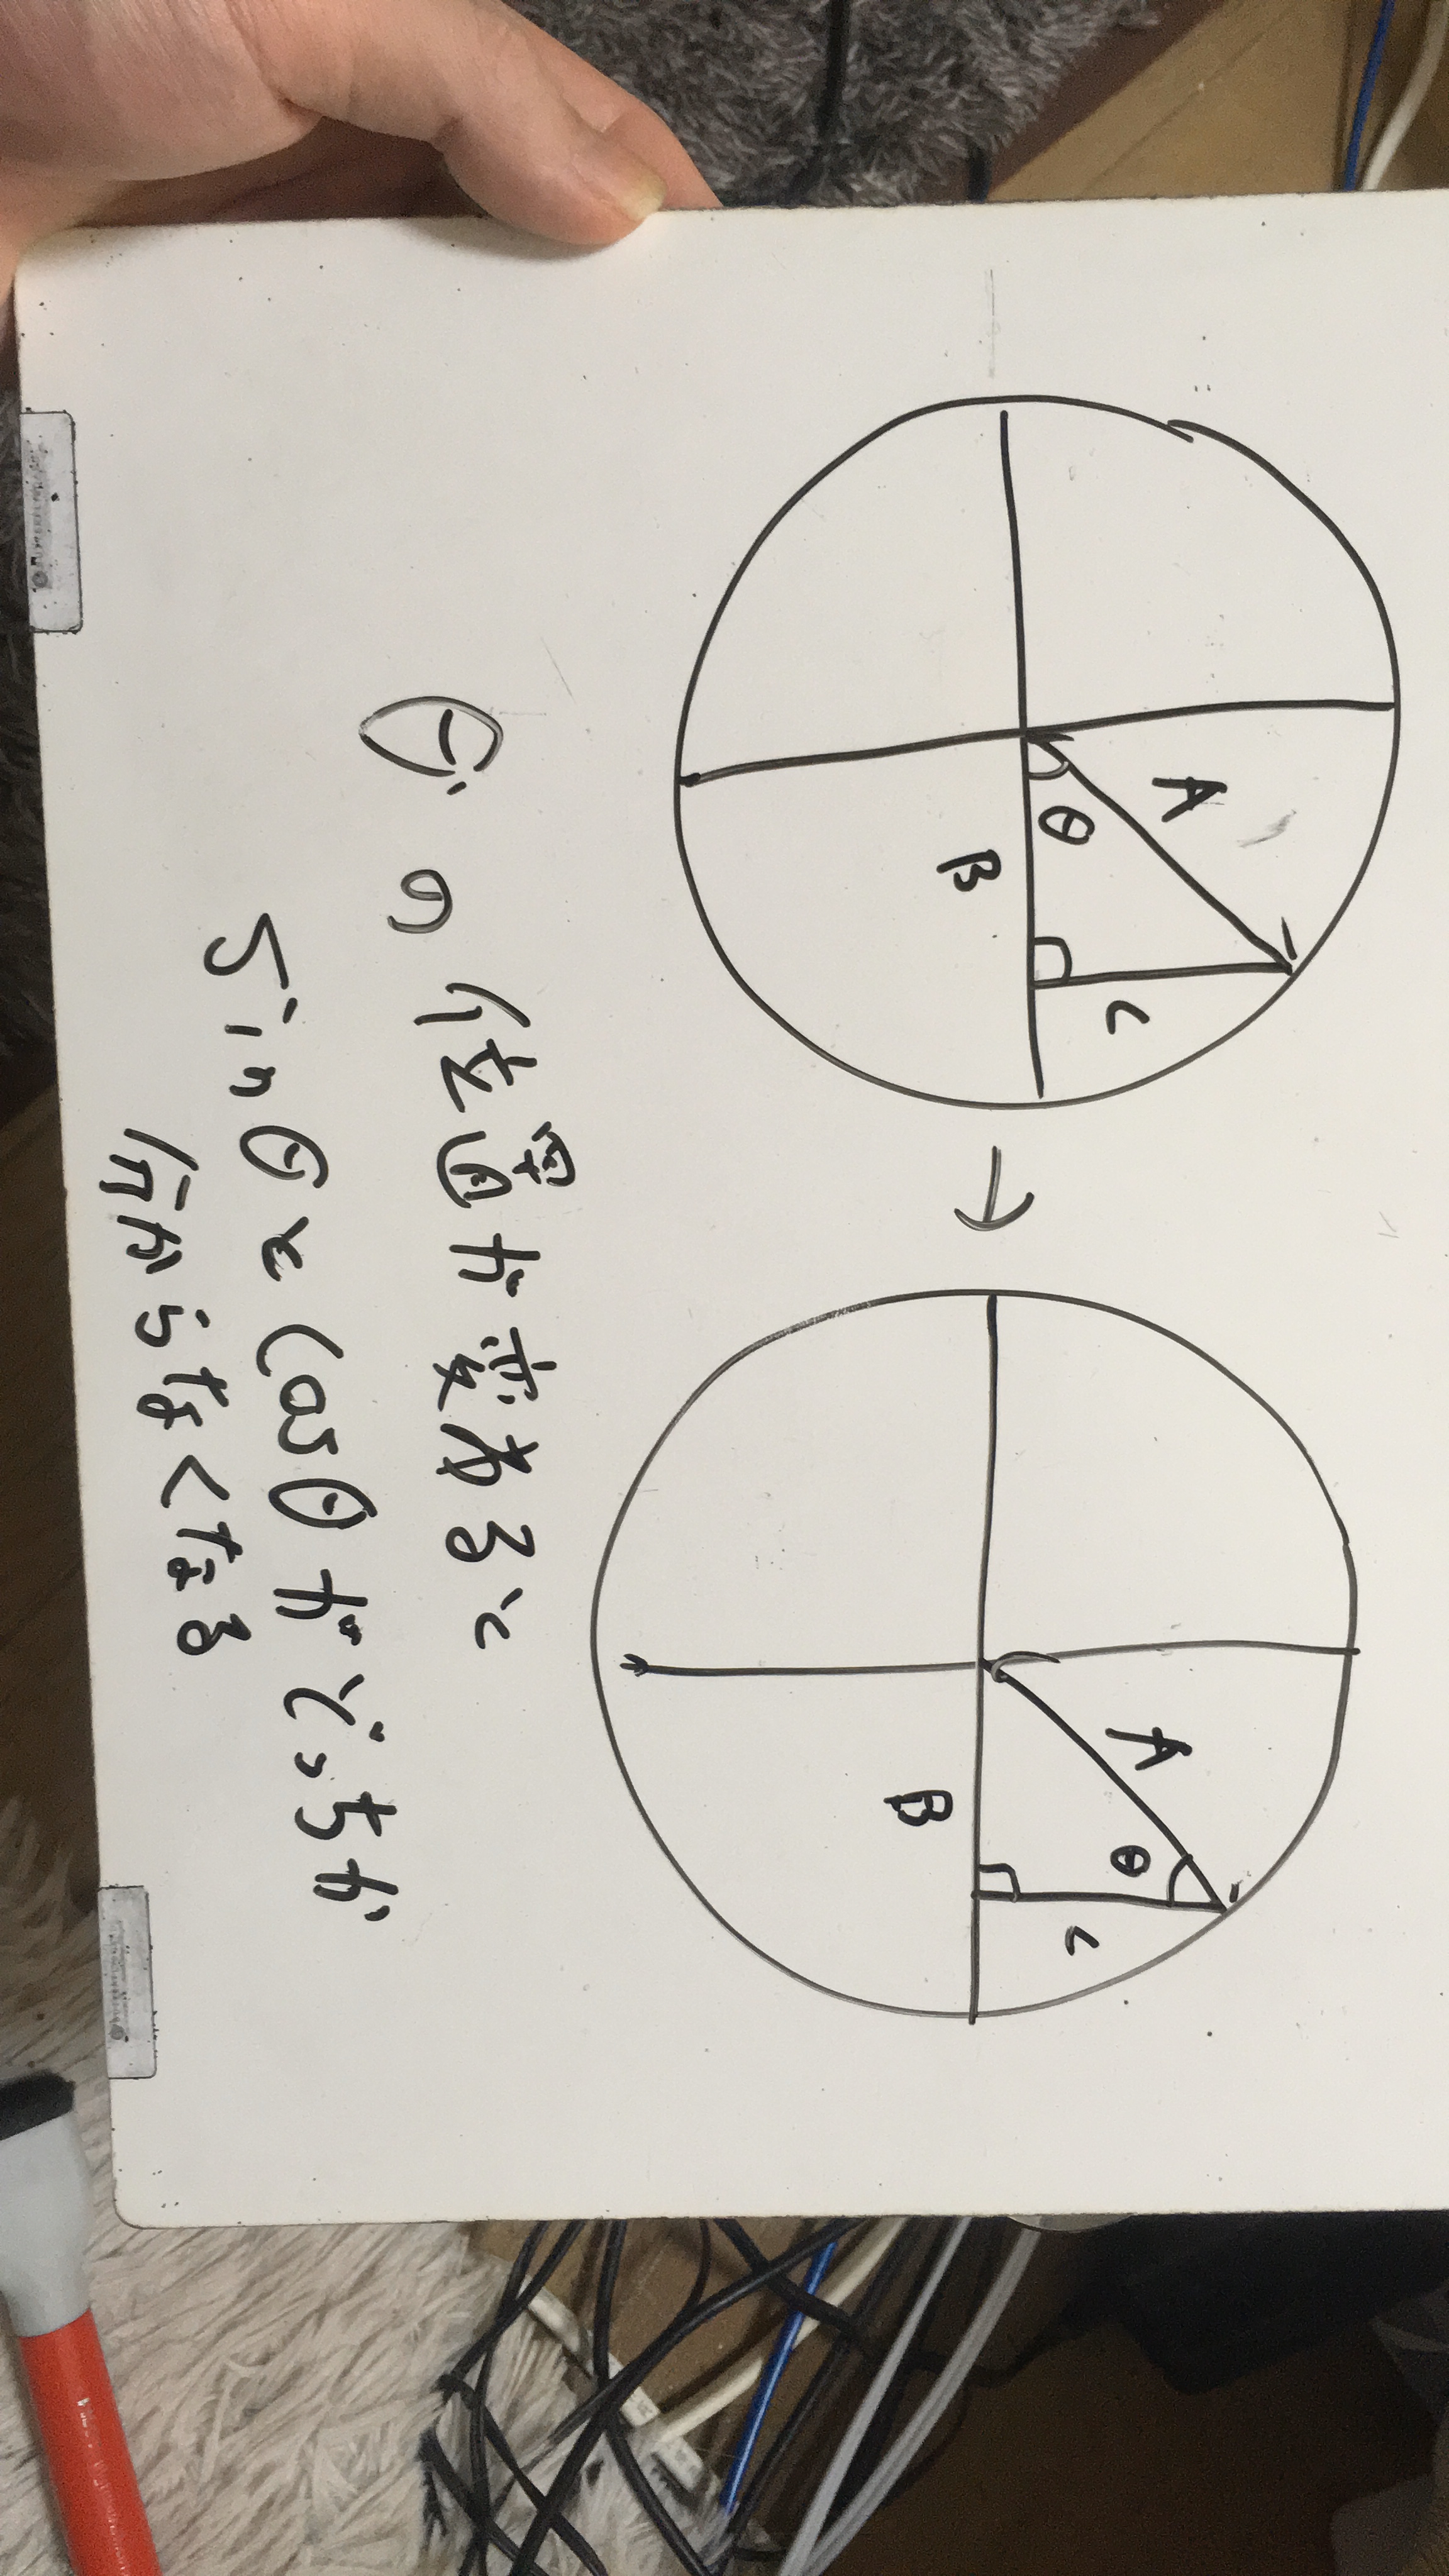 A
θ
B
C
→
A
θ
B
C
θの位置が変わると
sinθとcosθがどっちか
分からなくなる